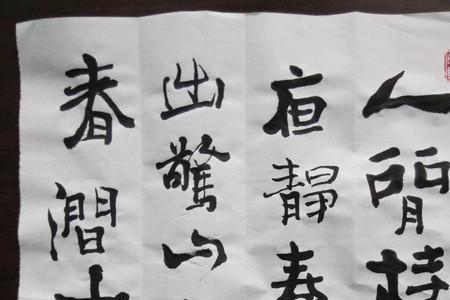 人閒桂
夜靜春
出驚山
春澗